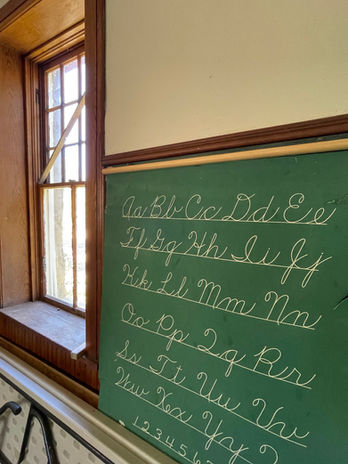 Aa Bb Cc Dd Ee
Ff Gg Hh Ii Jj
Kk Ll Mm Nn
Oo Pp Qq Rr
Ss Tt Uu Vv
Ww Xx Yy Z
1 2 3 4 5 6